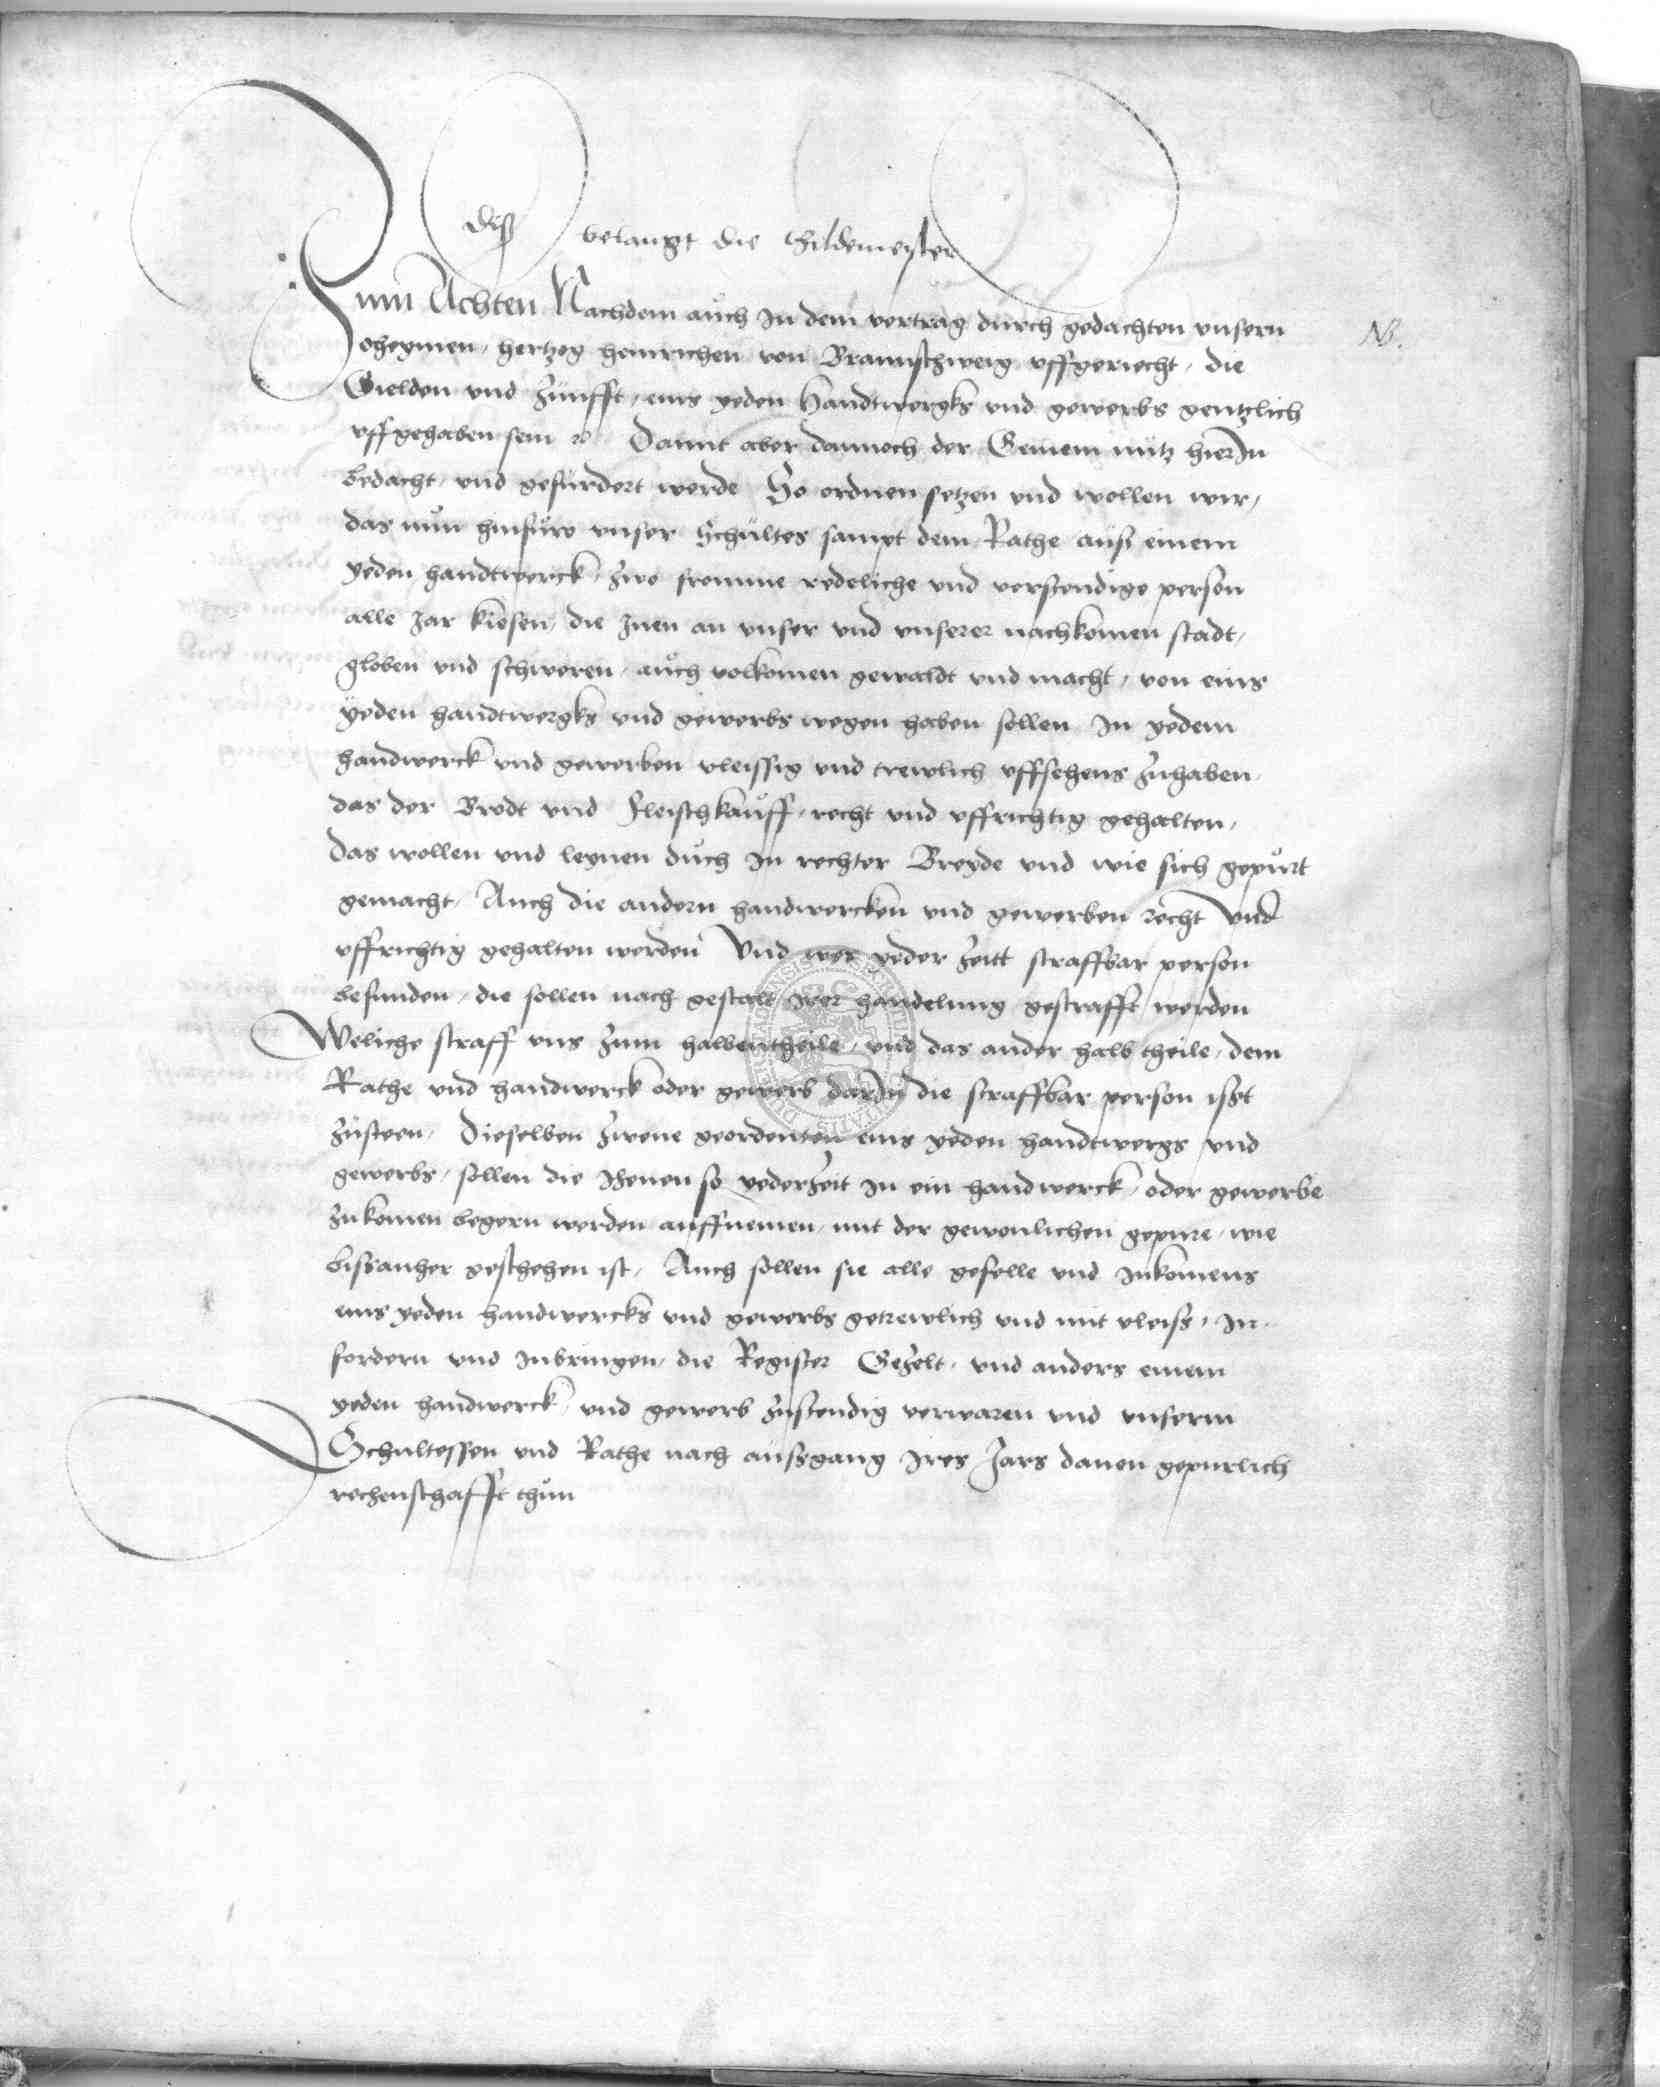 Diß belangt die Gildemeister
Zum Achten Nachdem auch In dem vertrag durch gedachten vnsern
NB.
oheymen, hertzog heinrichen von Braunschweig vffgericht, die
Gielden vnd Zunfft, eins yeden Handtwergks vnd gewerbs gentzlich
vffgehaben sein Damit aber dannoch der Gemein nutz hierIn
bedacht, vnd gefürdert werde So ordnen setzen vnd wollen wir,
das nun hinfuro vnser Schultes sampt dem Rathe auß einem
yeden handtwerck, Zwo fromme redeliche vnd verstendige person
alle Jar kiesen, die Inen an vnser vnd vnserer nachkomen stadt,
globen vnd schweren, auch volkomen gewaldt vnd macht, von eins
yeden handtwergks vnd gewerbs wegen haben sollen In yedem
handwerck vnd gewerben vleissig vnd trewlich vffsehens Zuhaben,
das der Brodt vnd Fleischkauff, recht vnd vffrichtig gehalten,
Das wollen vnd leynen duch In rechter Breyde vnd wie sich gepurt
gemacht, Auch die andern handwercken vnd gewerben recht Vnd
vffrichtig gehalten werden Vnd wer yeder Zeitt straffbar person
befunden, die sollen nach gestalt Irer handelung gestrafft werden
Weliche straff vns Zum halbentheile, vnd das ander halb theile, dem
Rathe vnd handwerck oder gewerb darIn die straffbar person ist
Zusteen, Dieselben Zwene geordenten eins yeden handtwergs vnd
gewerbs, sollen die Ihenen so yederZeit In ein handwerck, oder gewerbe
Zukomen begern werden auffnemen, mit der gewonlichen gepure, wie
bissanher geschehen ist, Auch sollen sie alle gefelle vnd Inkomens
eins yeden handwercks vnd gewerbs getrewlich vnd mit vleiss, In
fordern vnd Inbringen, die Register Gezelt, vnd anders einem
yeden handwerck, vnd gewerb Zustendig verwaren vnd vnserm
Schultessen vnd Rathe nach aussgang Ires Jars dauon gepurlich
rechenschafft thun